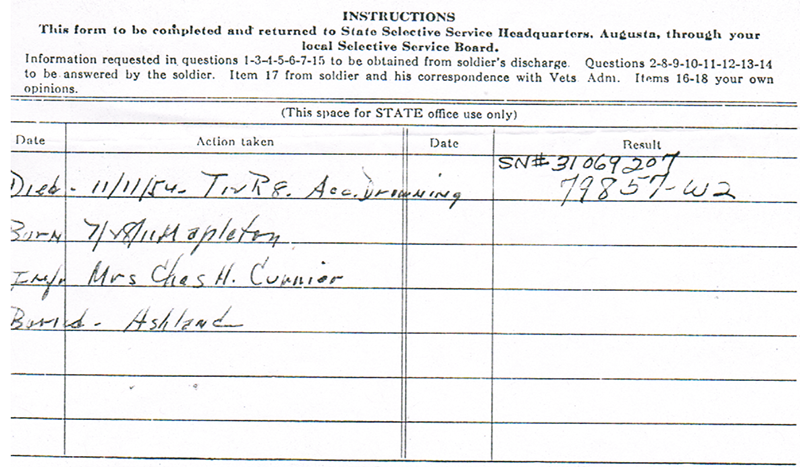 INSTRUCTIONS
This form to be completed and returned to State Selective Service Headquarters, Augusta, through your
local Selective Service Board.
Information requested in questions 1-3-4-5-6-7-15 to be obtained from soldier's discharge. Questions 2-8-9-10-11-12-13-14
to be answered by the soldier. Item 17 from soldier and his correspondence with Vets Adm. Items 16-18 your own
opinions.
(This space for STATE office use only)
Date Action taken Date Result
SN# 31069207
Died - 11/11/54 - Acc. Drowning 79857-W2
Born Mapleton
Mrs Chas H.
Buried - Ashland